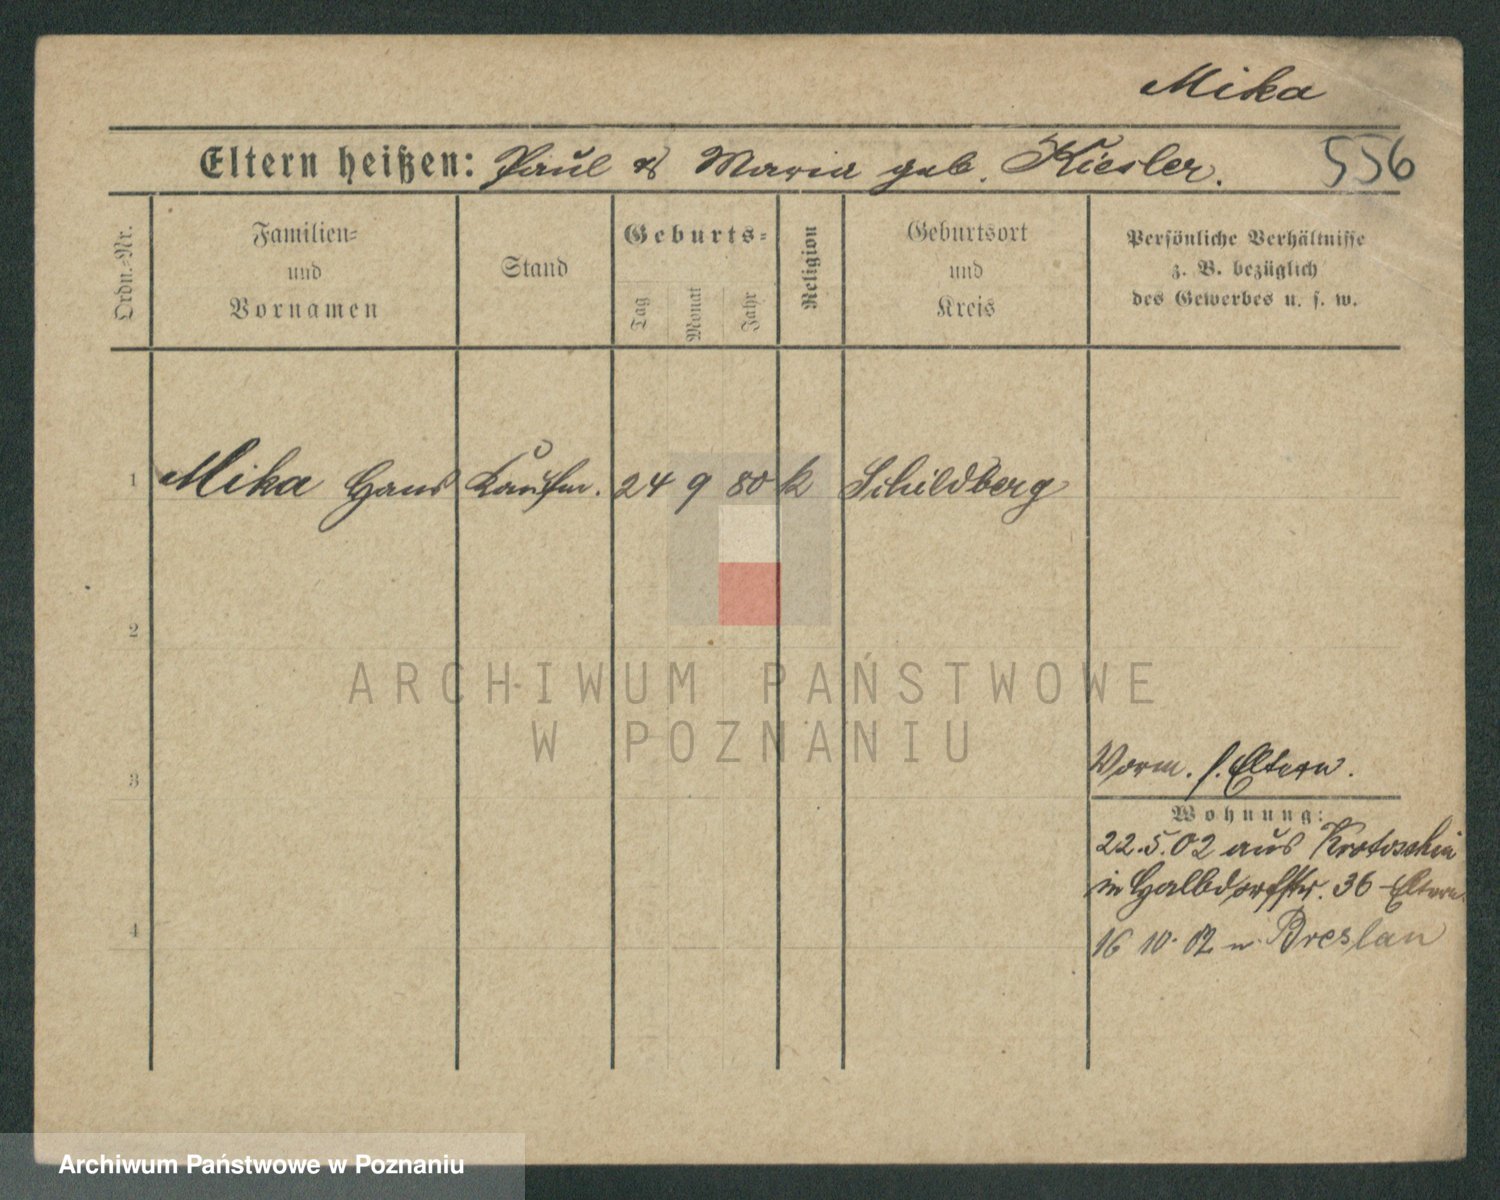 Mika
Eltern heißen: Paul & Maria geb. Kiesler.
556
Ordn.-Nr.
Familien-
und
Vornamen
Stand
Geburts-
Tag
Monat
Jahr
Religion
Geburtsort
und
Kreis
Persönliche Verhältnisse
z. B. bezüglich
des Gewerbes u. s. w.
1 Mika Hans Kaufm. 24 9 80 k Schildberg
2
3
Vorm. s. Eltern.
Wohnung:
22.5.02 aus Krotoschin
in Halbdorfstr. 36 Eltern
4
16 10 02 n Breslau
ARCHIWUM PAŃSTWOWE
W POZNANIU
Archiwum Państwowe w Poznaniu